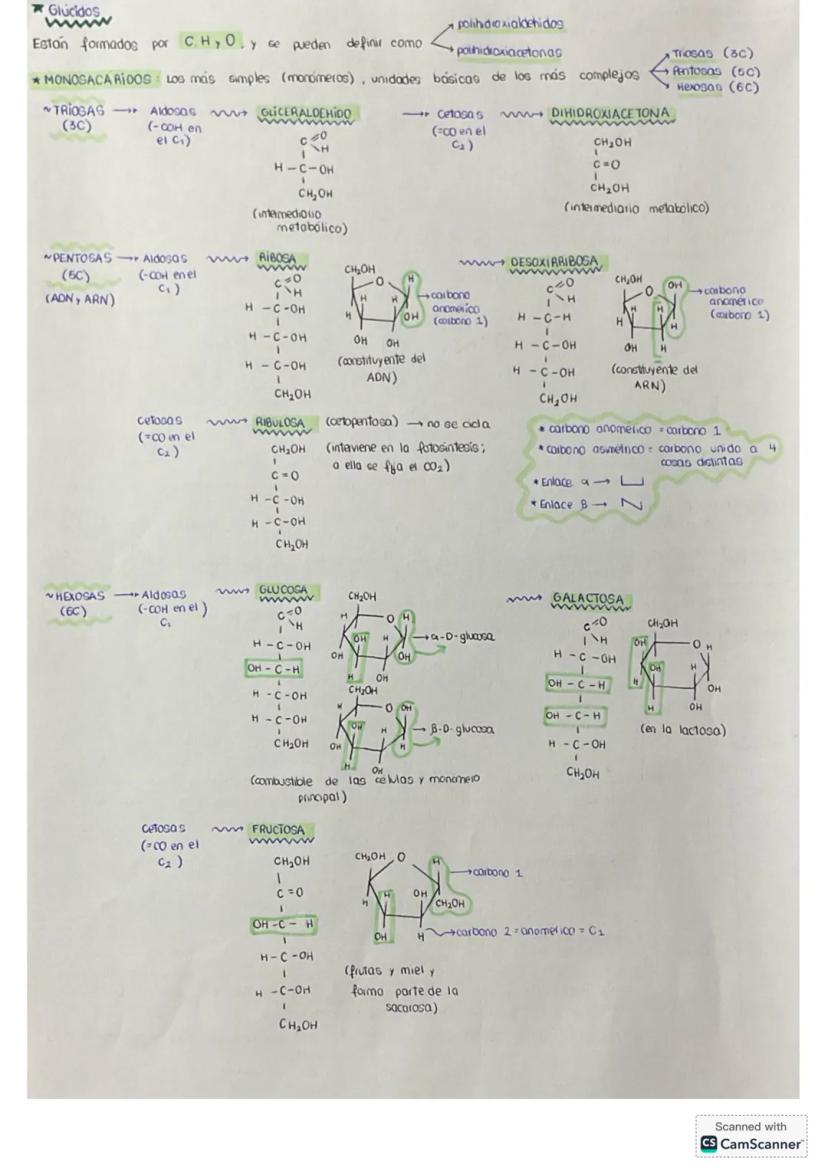 ★ Glúcidos
Están formados por C, H y O, y se pueden definir como
polihidroxialdehidos
polihidroxiacetonas
★ MONOSACÁRIDOS: Los más simples (monómeros), unidades básicas de los más complejos
Triosas (3C)
Pentosas (5C)
Hexosas (6C)
~TRIOSAS → Aldosas GLICERALDEHÍDO → Cetosas DIHIDROXIACETONA
(3C) (-COH en el C₁) (=CO en el C₂)
C=O
H
H - C - OH
CH₂OH
(intermediario metabólico)
CH₂OH
C=O
CH₂OH
(intermediario metabólico)
~PENTOSAS → Aldosas RIBOSA DESOXIRRIBOSA
(5C) (-COH en el C₁)
(ADN y ARN)
C=O
H
H - C - OH
H - C - OH
H - C - OH
CH₂OH
CH₂OH O H
H H
H OH
OH OH
→ carbono anomérico (carbono 1)
(constituyente del ADN)
C=O
H
H - C - H
H - C - OH
H - C - OH
CH₂OH
CH₂OH O OH
H H
H H
OH H
→ carbono anomérico (carbono 1)
(constituyente del ARN)
Cetosas RIBULOSA (cetopentosa) → no se cicla
(=CO en el C₂)
(interviene en la fotosíntesis;
a ella se fija el CO₂)
CH₂OH
C=O
H - C - OH
H - C - OH
CH₂OH
* carbono anomérico = carbono 1
* carbono asimétrico = carbono unido a 4
cosas distintas
* Enlace α →
* Enlace β →
~HEXOSAS → Aldosas GLUCOSA GALACTOSA
(6C) (-COH en el C₁)
C=O
H
H - C - OH
OH - C - H
H - C - OH
H - C - OH
CH₂OH
CH₂OH
H O H
OH H
OH OH
H OH
→ α-D-glucosa
CH₂OH
H O OH
OH H
OH H
H OH
→ β-D-glucosa
(combustible de las células y monómero
principal)
C=O
H
H - C - OH
OH - C - H
OH - C - H
H - C - OH
CH₂OH
CH₂OH
OH O H
OH H
H OH
H OH
(en la lactosa)
Cetosas FRUCTOSA
(=CO en el
C₂)
CH₂OH
C=O
OH - C - H
H - C - OH
H - C - OH
CH₂OH
CH₂OH O H
→ carbono 1
H H OH CH₂OH
OH H → carbono 2 = anomérico = C₁
(frutas y miel y
forma parte de la
sacarosa)
Scanned with
CS CamScanner